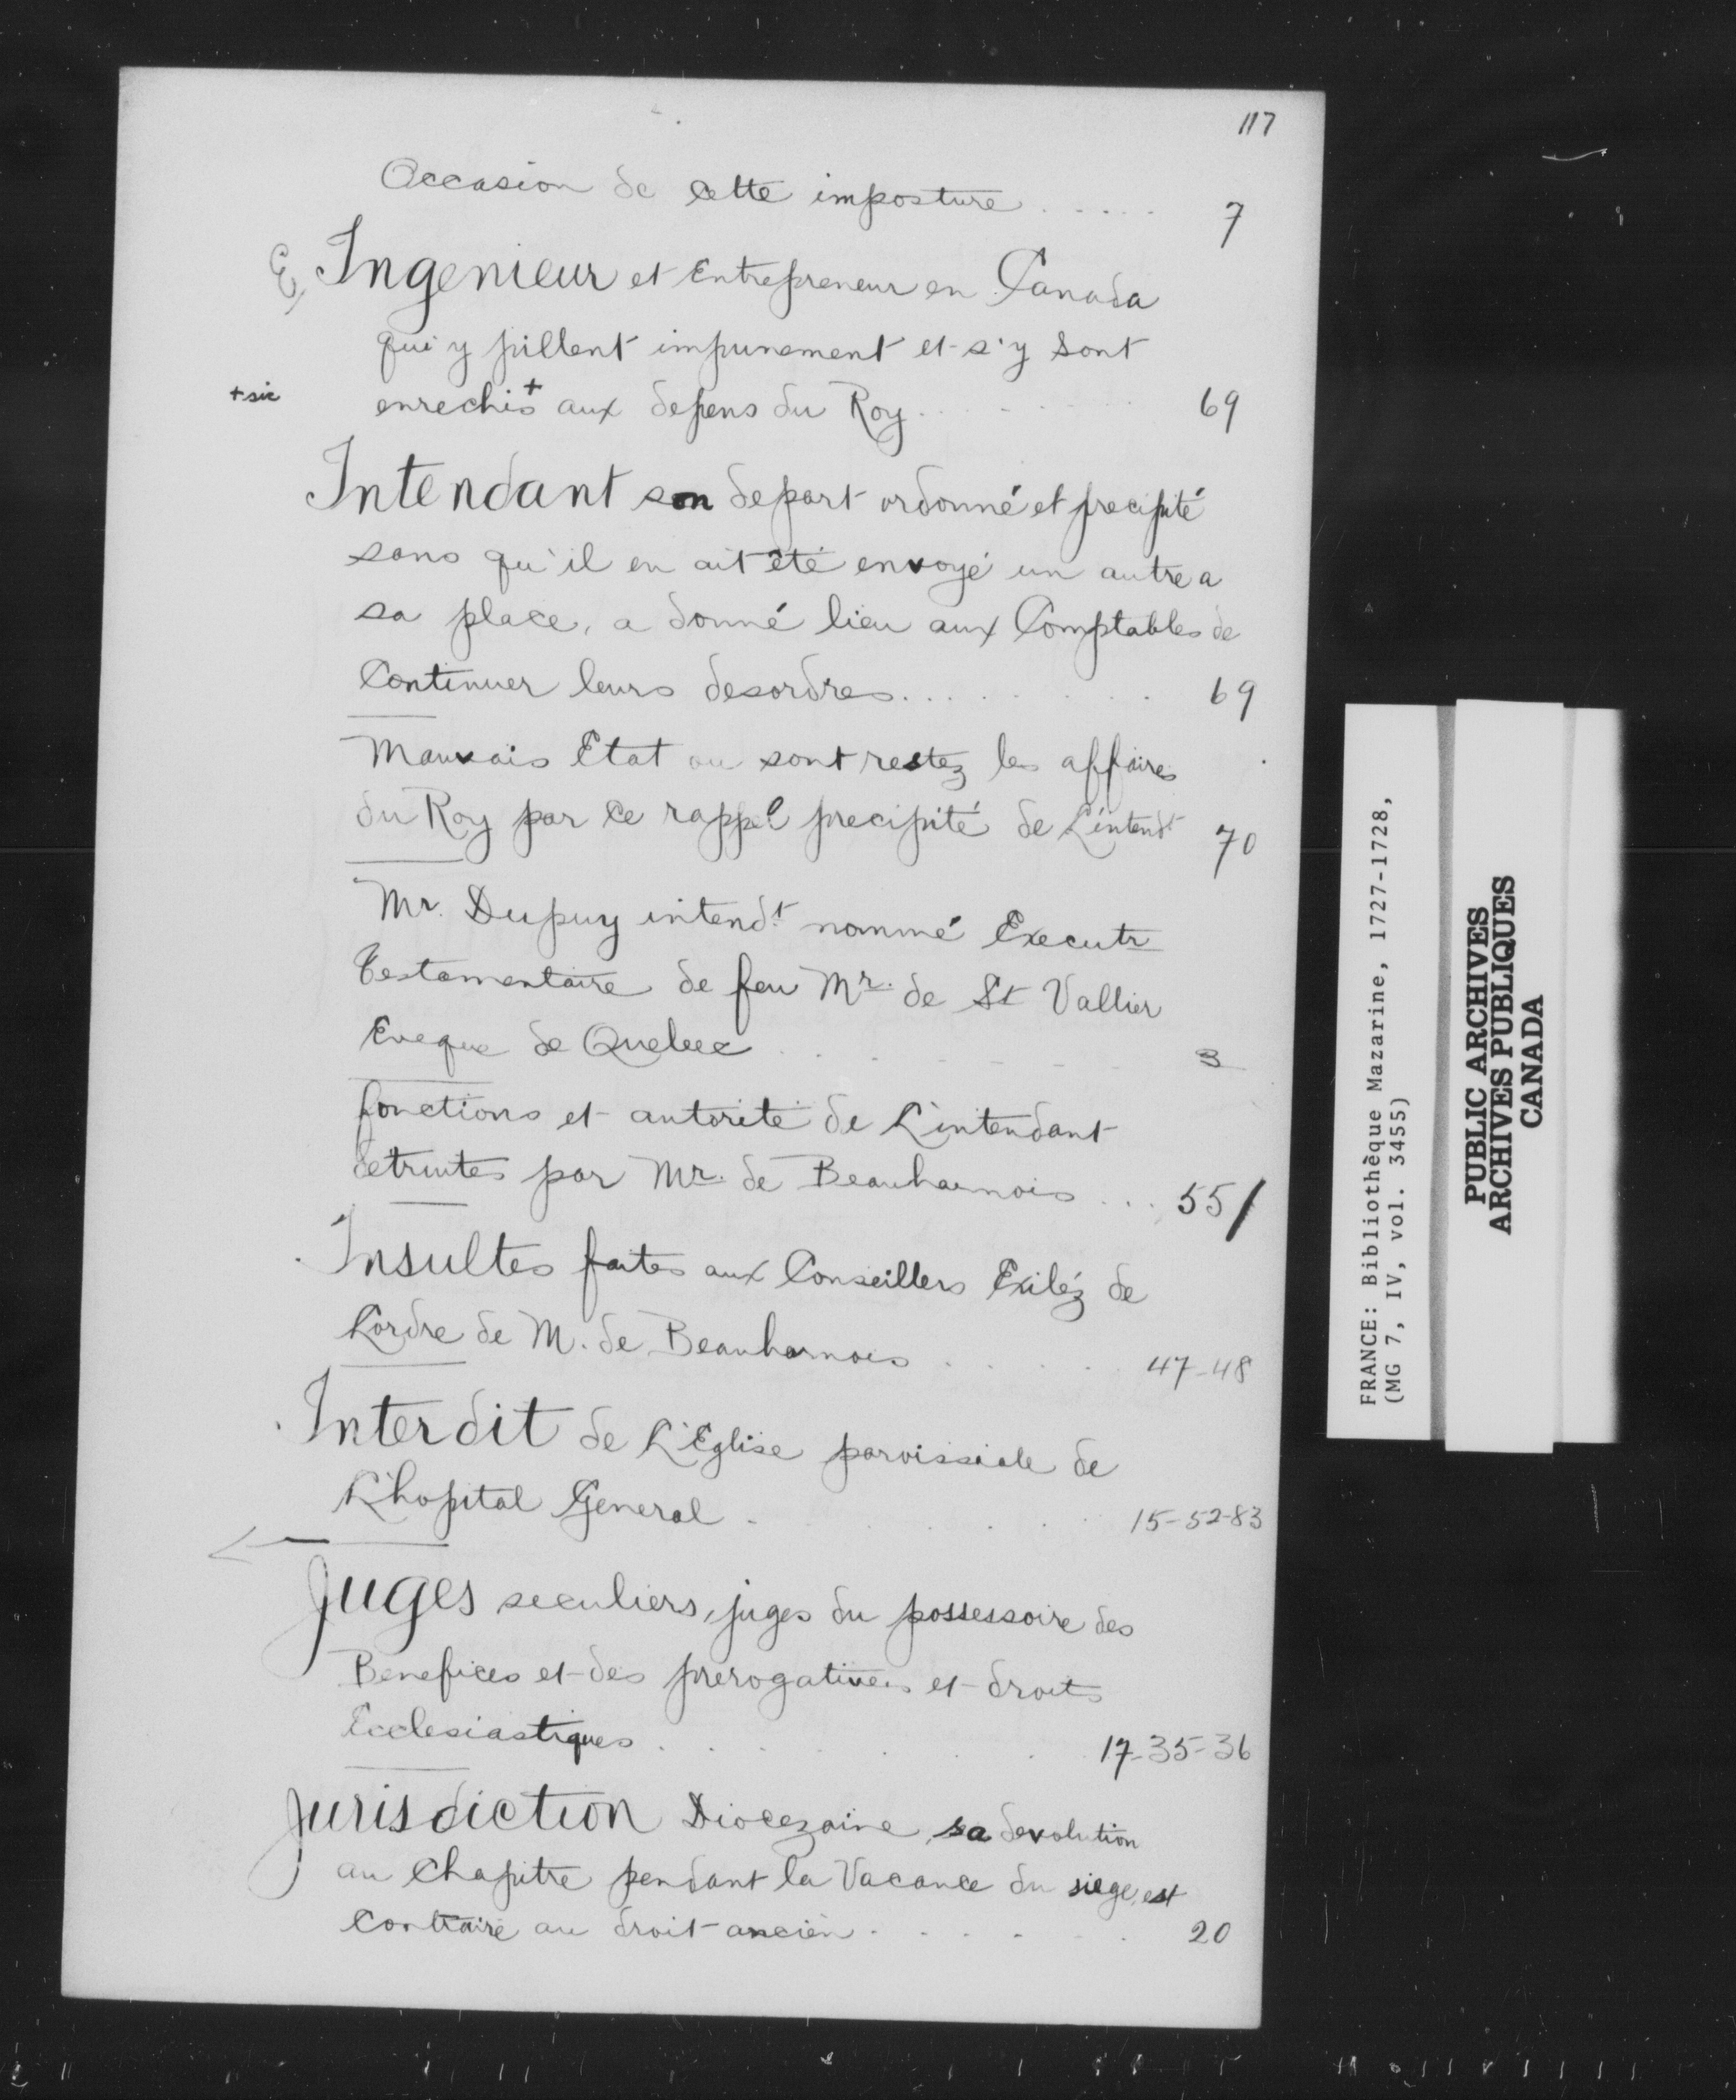 117
Occasion de cette imposture ..... 7
E, Ingenieur et Entrepreneur en Canada
qui y pillent impunement et s'y sont
+sic enrechis+ aux depens du Roy ..... 69
Intendant son depart ordonné et precipité
sans qu'il en ait été envoyé un autre a
sa place, a donné lieu aux Comptables de
Continuer leurs desordres ..... 69
Mauvais Etat ou sont restez les affaires
du Roy par ce rappel precipité de L'intendt 70
Mr. Dupuy intendt nommé Executr
Testamentaire de feu Mr. de St Vallier
Eveque de Quebec ..... 3
fonctions et autorité de L'intendant
detruites par Mr. de Beauharnois ... 55/
Insultes faites aux Conseillers Exiléz de
L'ordre de M. de Beauharnois ..... 47-48
Interdit de L'Eglise paroissiale de
L'hopital General ..... 15-52-83
Juges seculiers, juges du possessoire des
Benefices et des prerogatives et droits
Ecclesiastiques ..... 17-35-36
Jurisdiction Diocezaine, sa devolution
au Chapitre pendant la Vacance du siege, est
Contraire au droit ancien ..... 20
FRANCE: Bibliothèque Mazarine, 1727-1728,
(MG 7, IV, vol. 3455)
PUBLIC ARCHIVES
ARCHIVES PUBLIQUES
CANADA